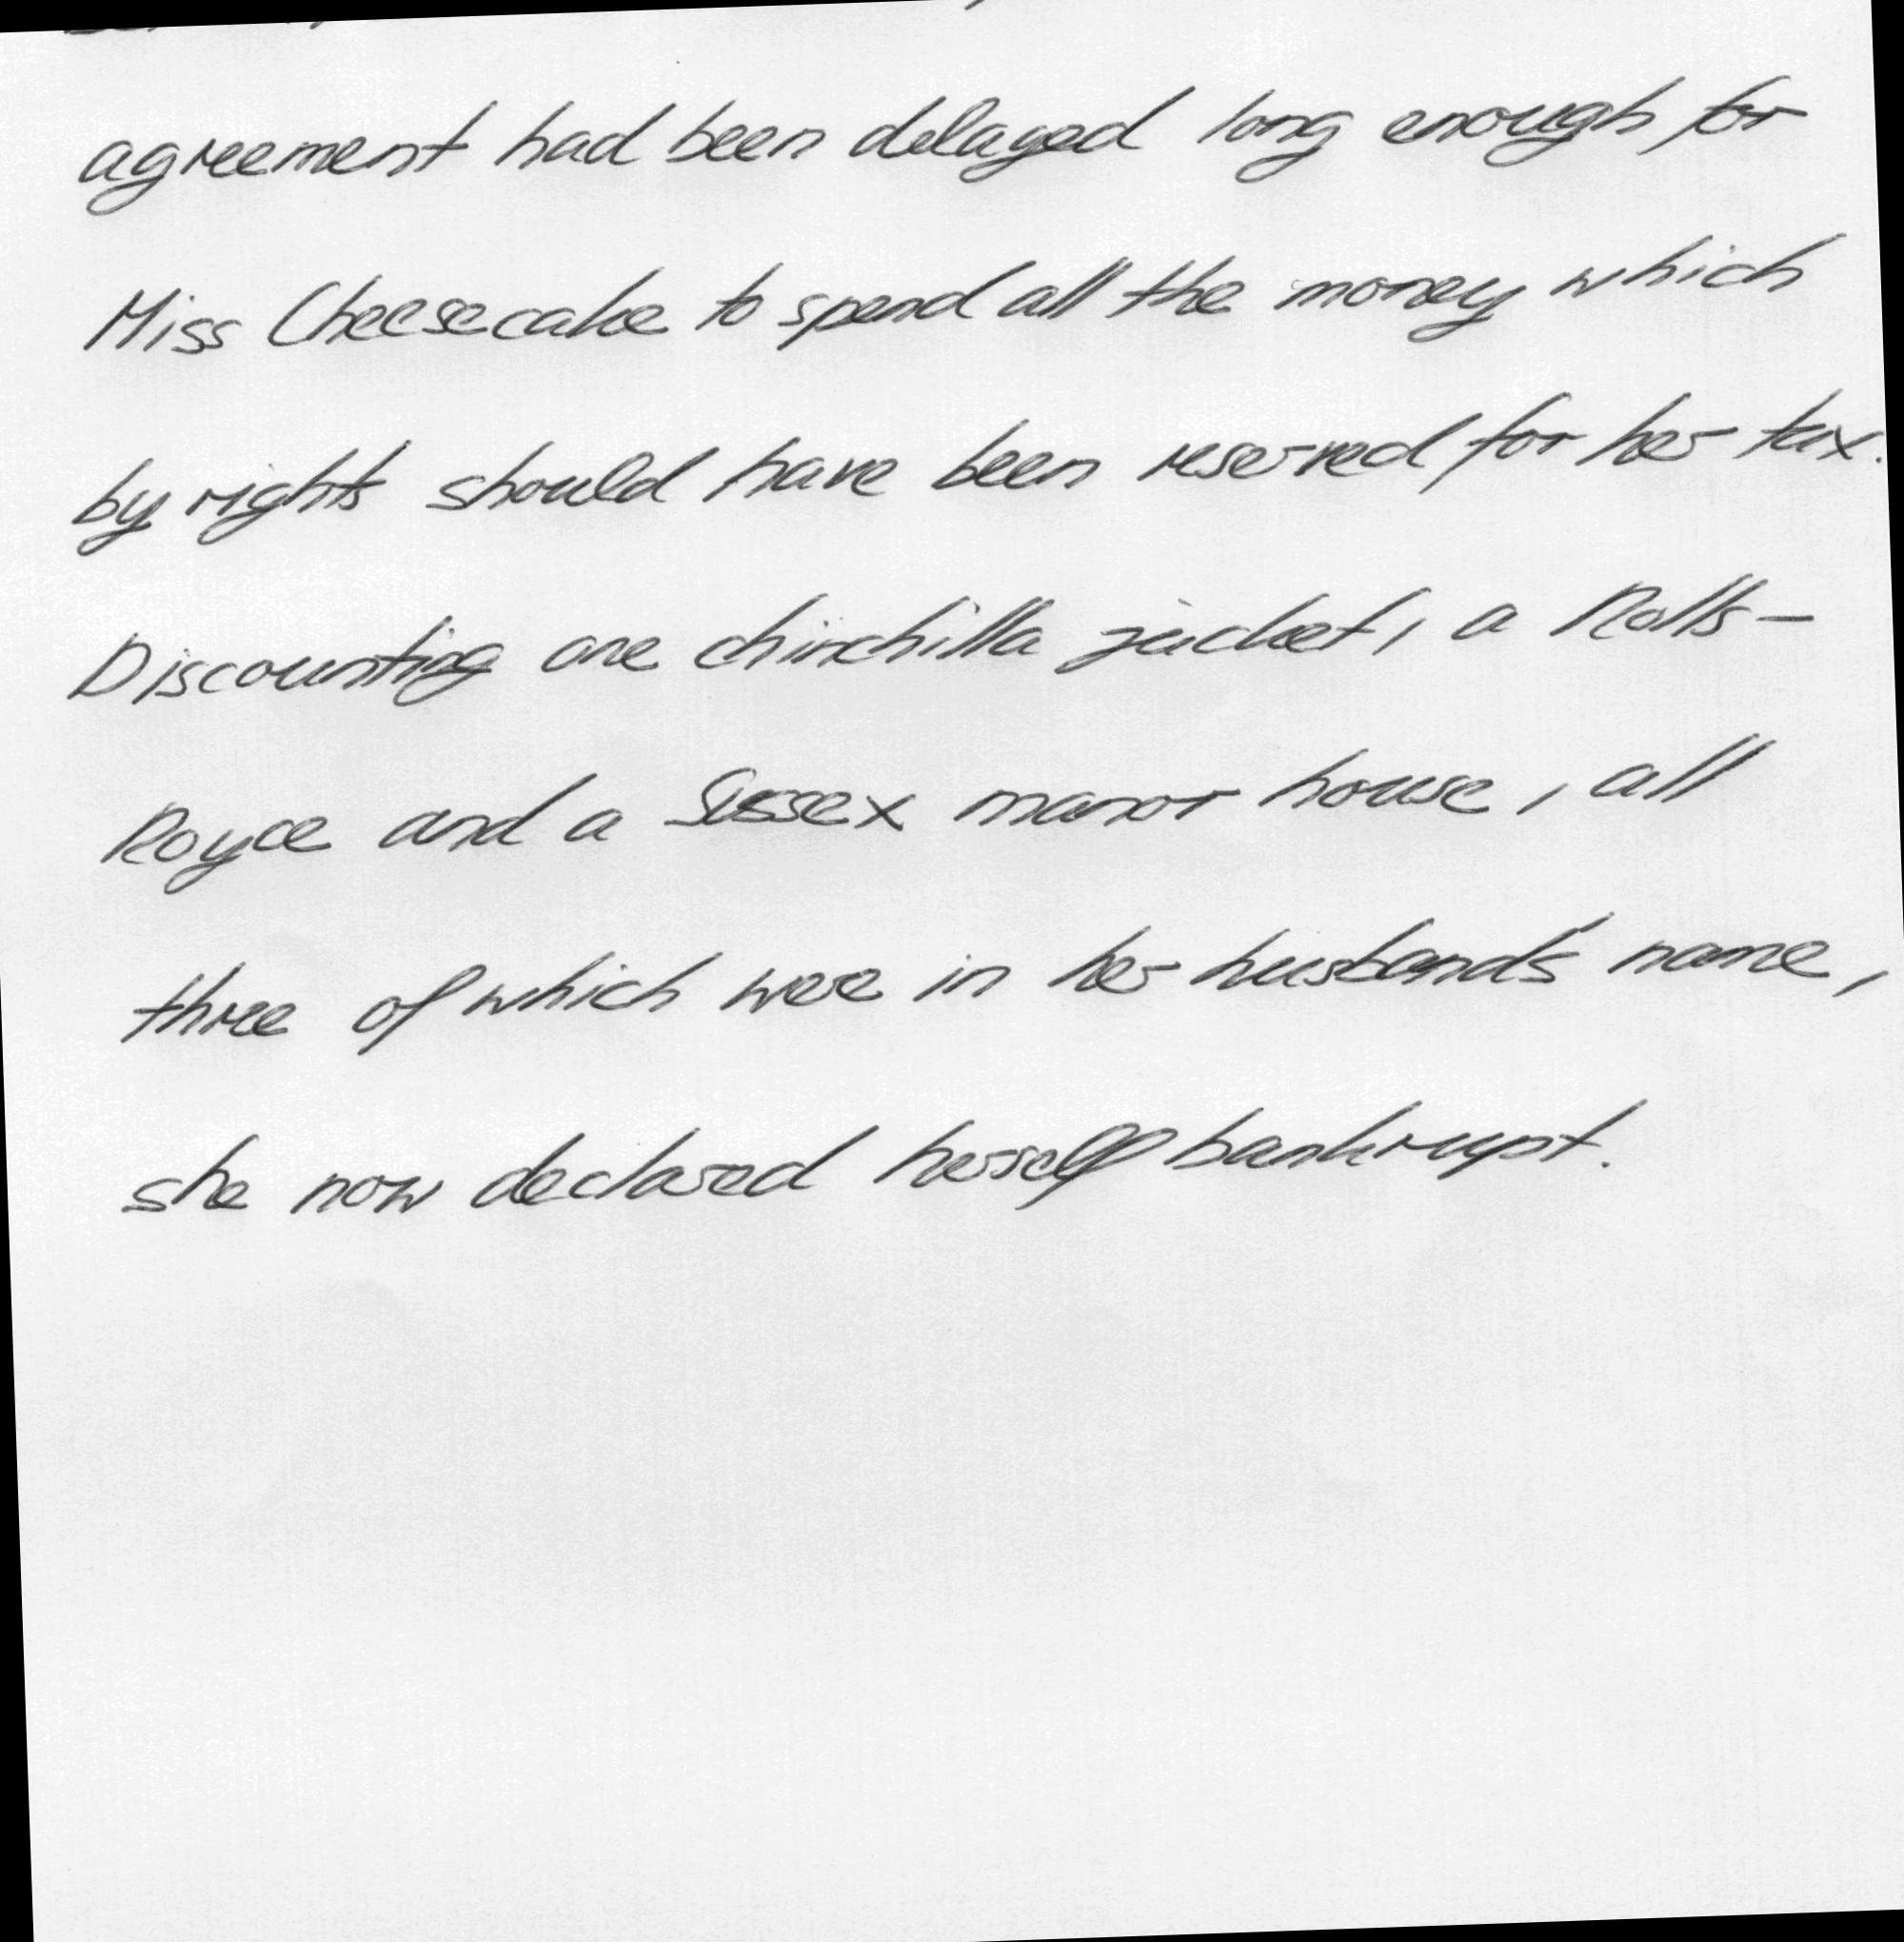 agreement had been delayed long enough for
Miss Cheesecake to spend all the money which
by rights should have been reserved for her tax.
Discounting one chinchilla jacket, a Rolls-
Royce and a Sussex manor house, all
three of which were in her husband's name,
she now declared herself bankrupt.